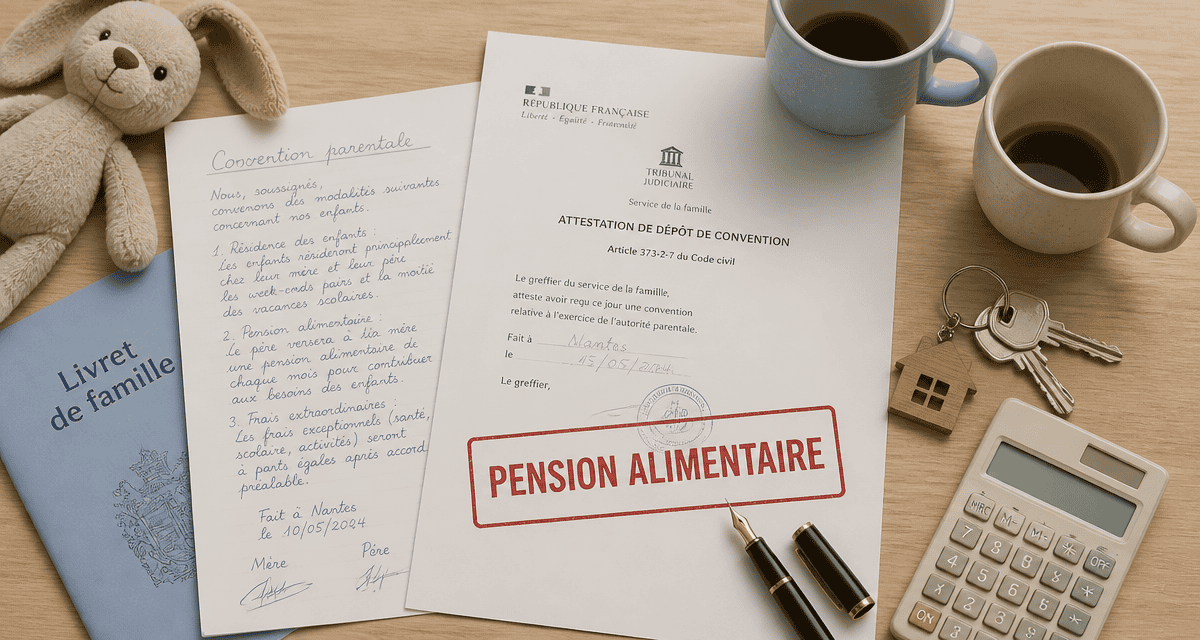 Livret
de famille
Convention parentale
Nous, soussignés,
convenons des modalités suivantes
concernant nos enfants.
1. Résidence des enfants :
Les enfants résideront principalement
chez leur mère et leur père
les week-ends pairs et la moitié
des vacances scolaires.
2. Pension alimentaire :
Le père versera à la mère
une pension alimentaire de
chaque mois pour contribuer
aux besoins des enfants.
3. Frais extraordinaires :
Les frais exceptionnels (santé,
scolaire, activités) seront
à parts égales après accord
préalable.
Fait à Nantes
le 10/05/2024
Mère
Père
RÉPUBLIQUE FRANÇAISE
Liberté - Égalité - Fraternité
TRIBUNAL
JUDICIAIRE
Service de la famille
ATTESTATION DE DÉPÔT DE CONVENTION
Article 373-2-7 du Code civil
Le greffier du service de la famillle,
atteste avoir reçu ce jour une convention
relative à l'exercice de l'autorité parentale.
Fait à Nantes
le 15/05/2024
Le greffier,
PENSION ALIMENTAIRE
M- M-
7 8 8
4 5 6 6
ON 2